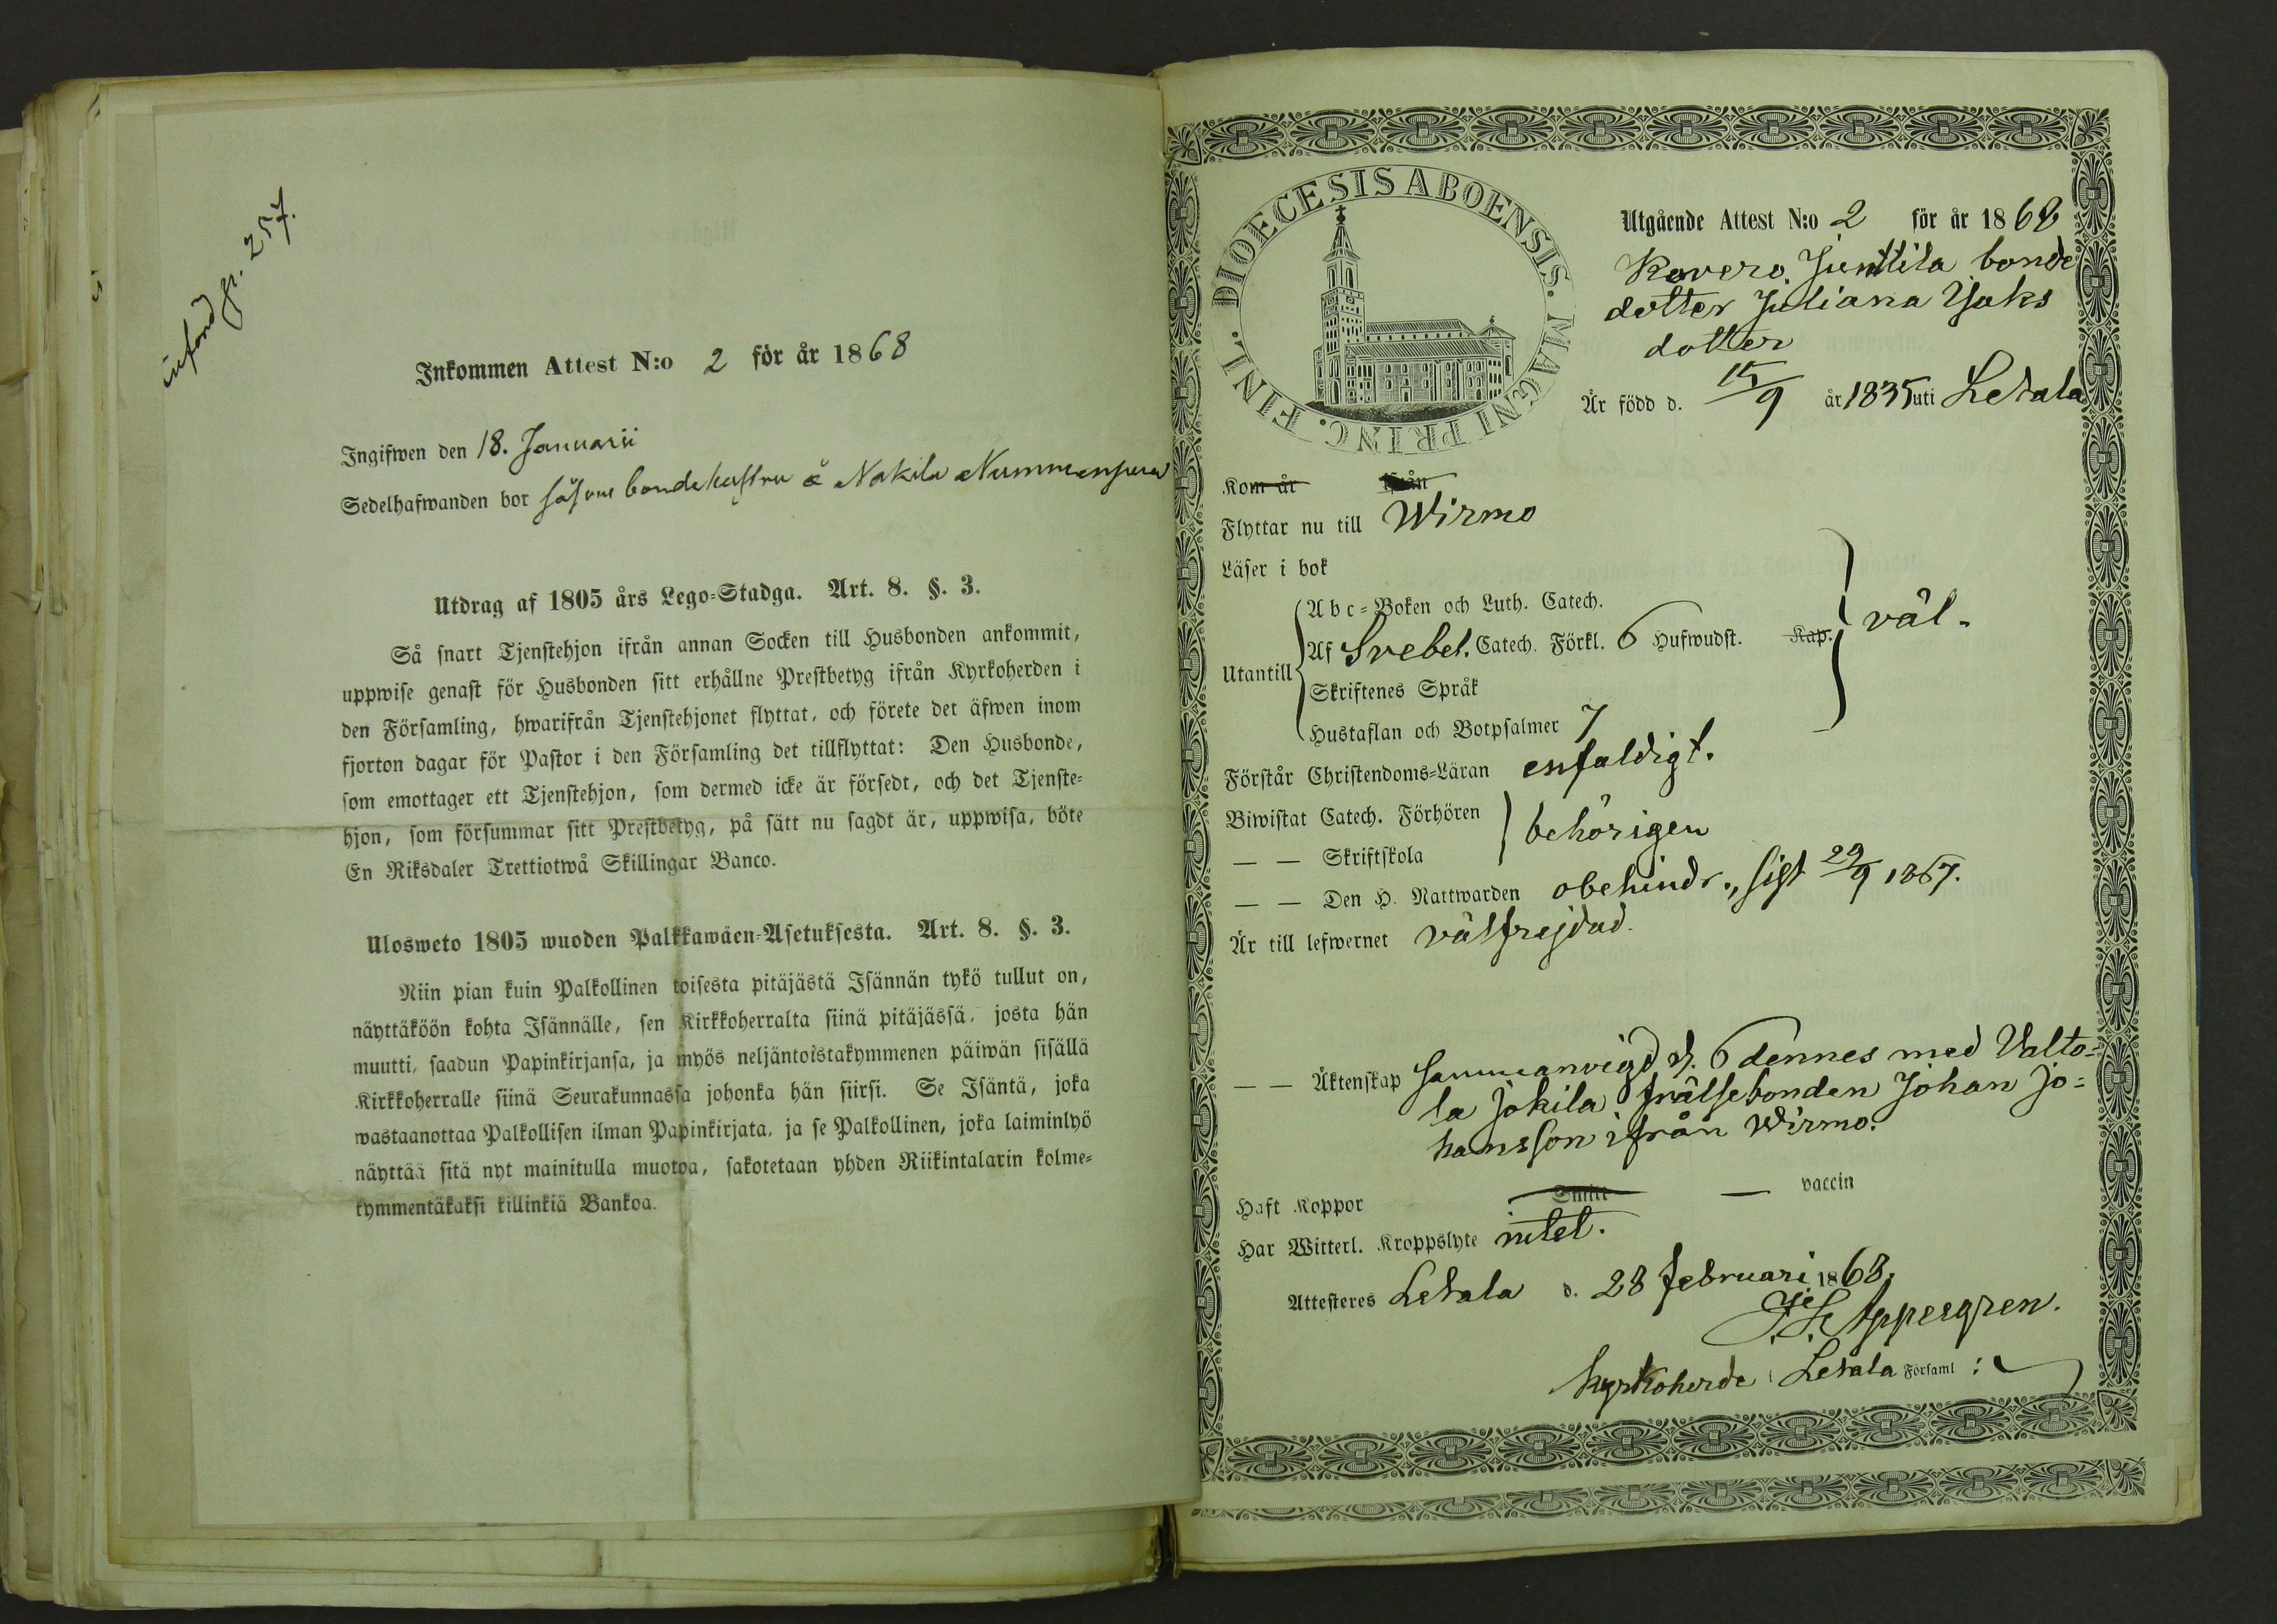 införd p. 257.
Inkommen Attest N:o 2 för år 1868
Ingifwen den 18. Januarii
Sedelhafwanden bor såsom bondehustru å Nakila Nummenpää
Utdrag af 1805 års Lego-Stadga. Art. 8. §. 3.
Så snart Tjenstehjon ifrån annan Socken till Husbonden ankommit,
uppwise genast för Husbonden sitt erhållne Prestbetyg ifrån Kyrkoherden i
den Församling, hwarifrån Tjenstehjonet flyttat, och förete det äfwen inom
fjorton dagar för Pastor i den Församling det tillflyttat: Den Husbonde,
som emottager ett Tjenstehjon, som dermed icke är försedt, och det Tjenste-
hjon, som försummar sitt Prestbetyg, på sätt nu sagdt är, uppwisa, böte
En Riksdaler Trettiotwå Skillingar Banco.
Ulosweto 1805 wuoden Palkkawäen-Asetuksesta. Art. 8. §. 3.
Niin pian kuin Palkollinen toisesta pitäjästä Isännän tykö tullut on,
näyttäköön kohta Isännälle, sen Kirkkoherralta siinä pitäjässä, josta hän
muutti, saadun Papinkirjansa, ja myös neljäntoistakymmenen päiwän sisällä
Kirkkoherralle siinä Seurakunnassa johonka hän siirsi. Se Isäntä, joka
wastaanottaa Palkollisen ilman Papinkirjata, ja se Palkollinen, joka laiminlyö
näyttää sitä nyt mainitulla muotoa, sakotetaan yhden Riikintalarin kolme-
kymmentäkaksi killinkiä Bankoa.
DIOECESIS ABOENSIS. MAGNI PRINC. FINL.
Utgående Attest N:o 2 för år 1868
Kovero Junttila bonde
dotter Juliana Isaks
dotter
Är född d. 15/9 år 1835 uti Letala
Kom år ifrån
Flyttar nu till Wirmo
Läser i bok
Abc-Boken och Luth. Catech.
Utantill Af Svebel. Catech. Förkl. 6 Hufwudst. Kap. väl.
Skriftenes Språk
Hustaflan och Botpsalmer 7
Förstår Christendoms-Läran enfaldigt.
Biwistat Catech. Förhören
— — Skriftskola behörigen
— — Den H. Nattwarden obehindr., sist 29/9 1867.
Är till lefwernet välfrejdad.
— — Äktenskap sammanvigd d. 6 dennes med Valto-
la Jokila frälsebonden Johan Jo-
hansson ifrån Wirmo.
Haft Koppor Smitt — vaccin
Har Witterl. Kroppslyte intet.
Attesteres Letala d. 28 februari 1868.
Appergren.
Kyrkoherde i Letala Församl: